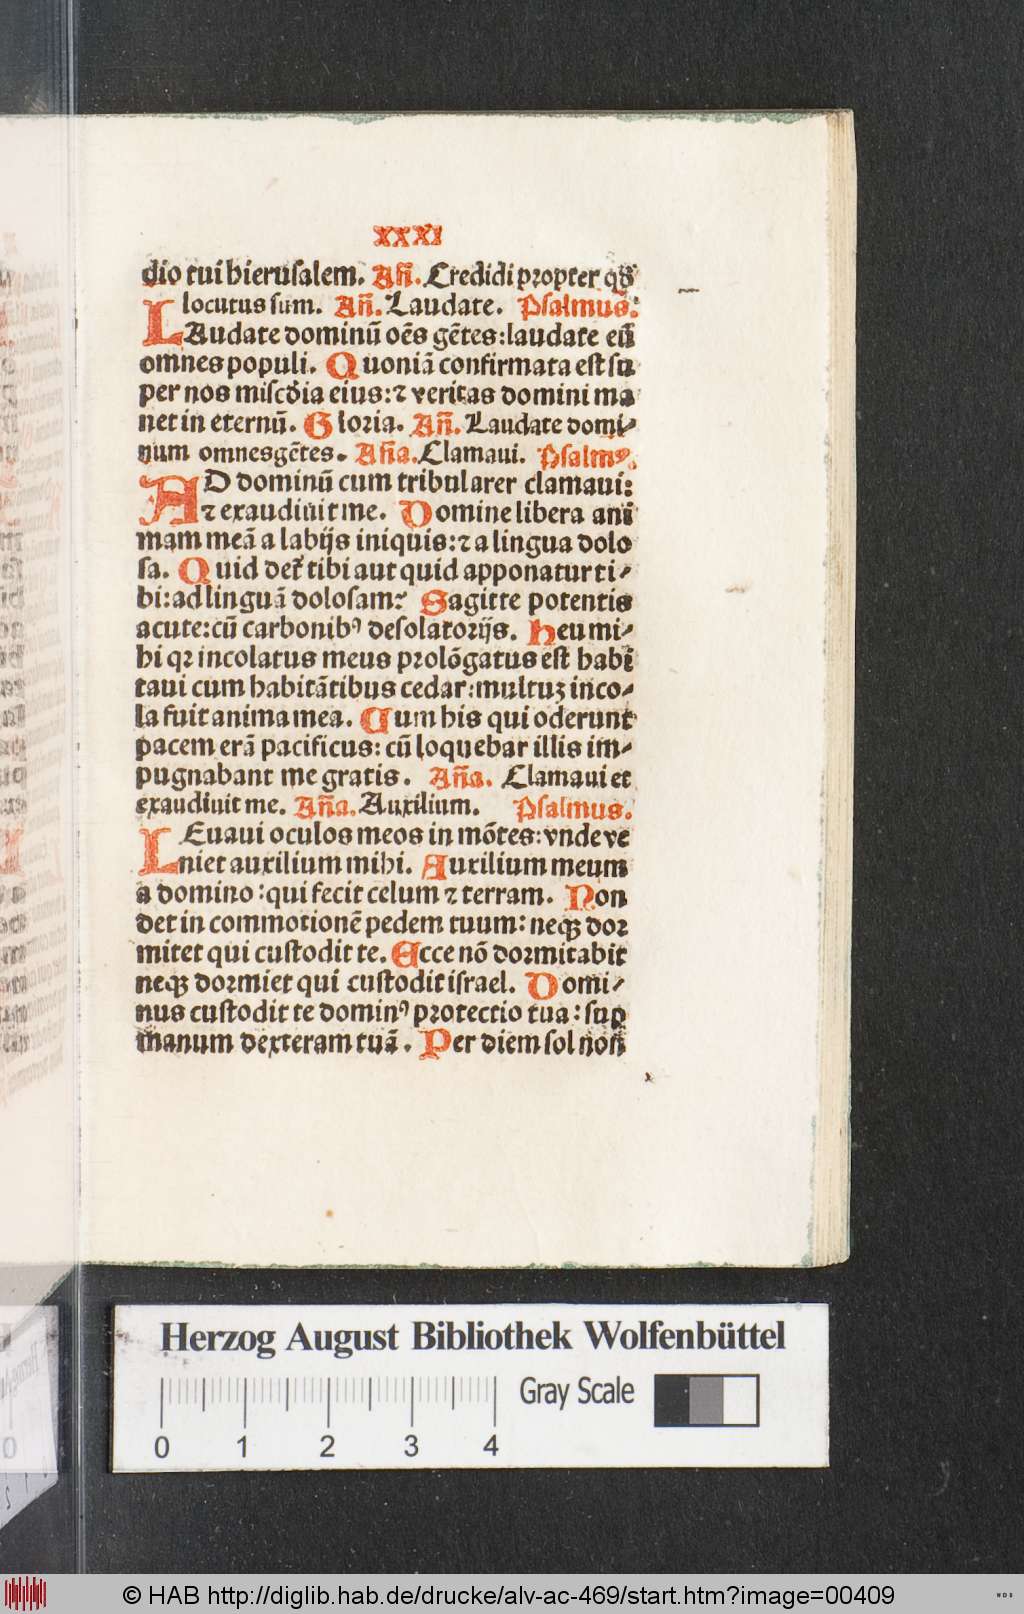 XXXI
dio tui hierusalem. Añ. Credidi propter qđ
locutus sum. Añ. Laudate. Psalmus.
LAudate dominū oēs gētes: laudate eū
omnes populi. Quoniā confirmata est su
per nos misc̄dia eius: ⁊ veritas domini ma
net in eternū. Gloria. Añ. Laudate domi⸗
num omnes gētes. Aña. Clamaui. Psalmꝰ.
AD dominū cum tribularer clamaui:
⁊ exaudiuit me. Domine libera ani
mam meā a labijs iniquis: ⁊ a lingua dolo
sa. Quid det̄ tibi aut quid apponatur ti⸗
bi: ad linguā dolosam? Sagitte potentis
acute: cū carbonibꝰ desolatorijs. Heu mi⸗
hi qꝛ incolatus meus prolōgatus est habi
taui cum habitātibus cedar: multuꝫ inco⸗
la fuit anima mea. Cum his qui oderunt
pacem erā pacificus: cū loquebar illis im⸗
pugnabant me gratis. Aña. Clamaui et
exaudiuit me. Aña. Auxilium. Psalmus.
LEuaui oculos meos in mōtes: vnde ve
niet auxilium mihi. Auxilium meum
a domino: qui fecit celum ⁊ terram. Non
det in commotionē pedem tuum: neqꝫ dor
mitet qui custodit te. Ecce nō dormitabit
neqꝫ dormiet qui custodit israel. Domi⸗
nus custodit te dominꝰ protectio tua: suꝑ
manum dexteram tuā. Per diem sol non
Herzog August Bibliothek Wolfenbüttel
Gray Scale
0 1 2 3 4
© HAB http://diglib.hab.de/drucke/alv-ac-469/start.htm?image=00409